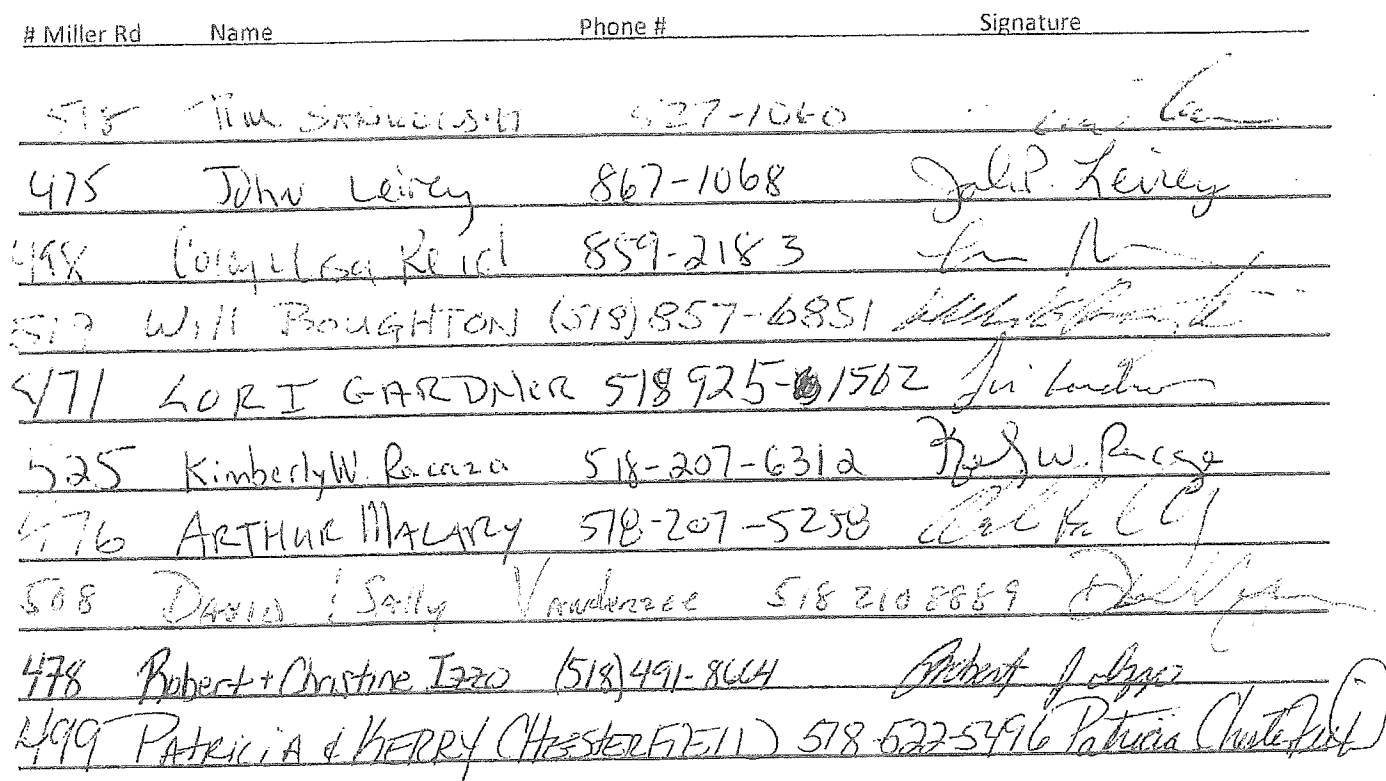 # Miller Rd Name Phone # Signature
518 Tim 527-1060
475 John Leirey 867-1068 John P. Leirey
498 Reid 859-2183
519 Will BOUGHTON (518) 857-6851
471 LORI GARDNER 518 925-1502
525 Kimberly W. Racaza 518-207-6312 W. Racaza
476 ARTHUR MALARY 518-207-5258
508 DAVID & Sally Vanderzee 518 210 8869
478 Robert + Christine Izzo (518) 491-8664 Robert J Izzo
499 PATRICIA & KERRY CHESTERFIELD 518-522-5496 Patricia Chesterfield